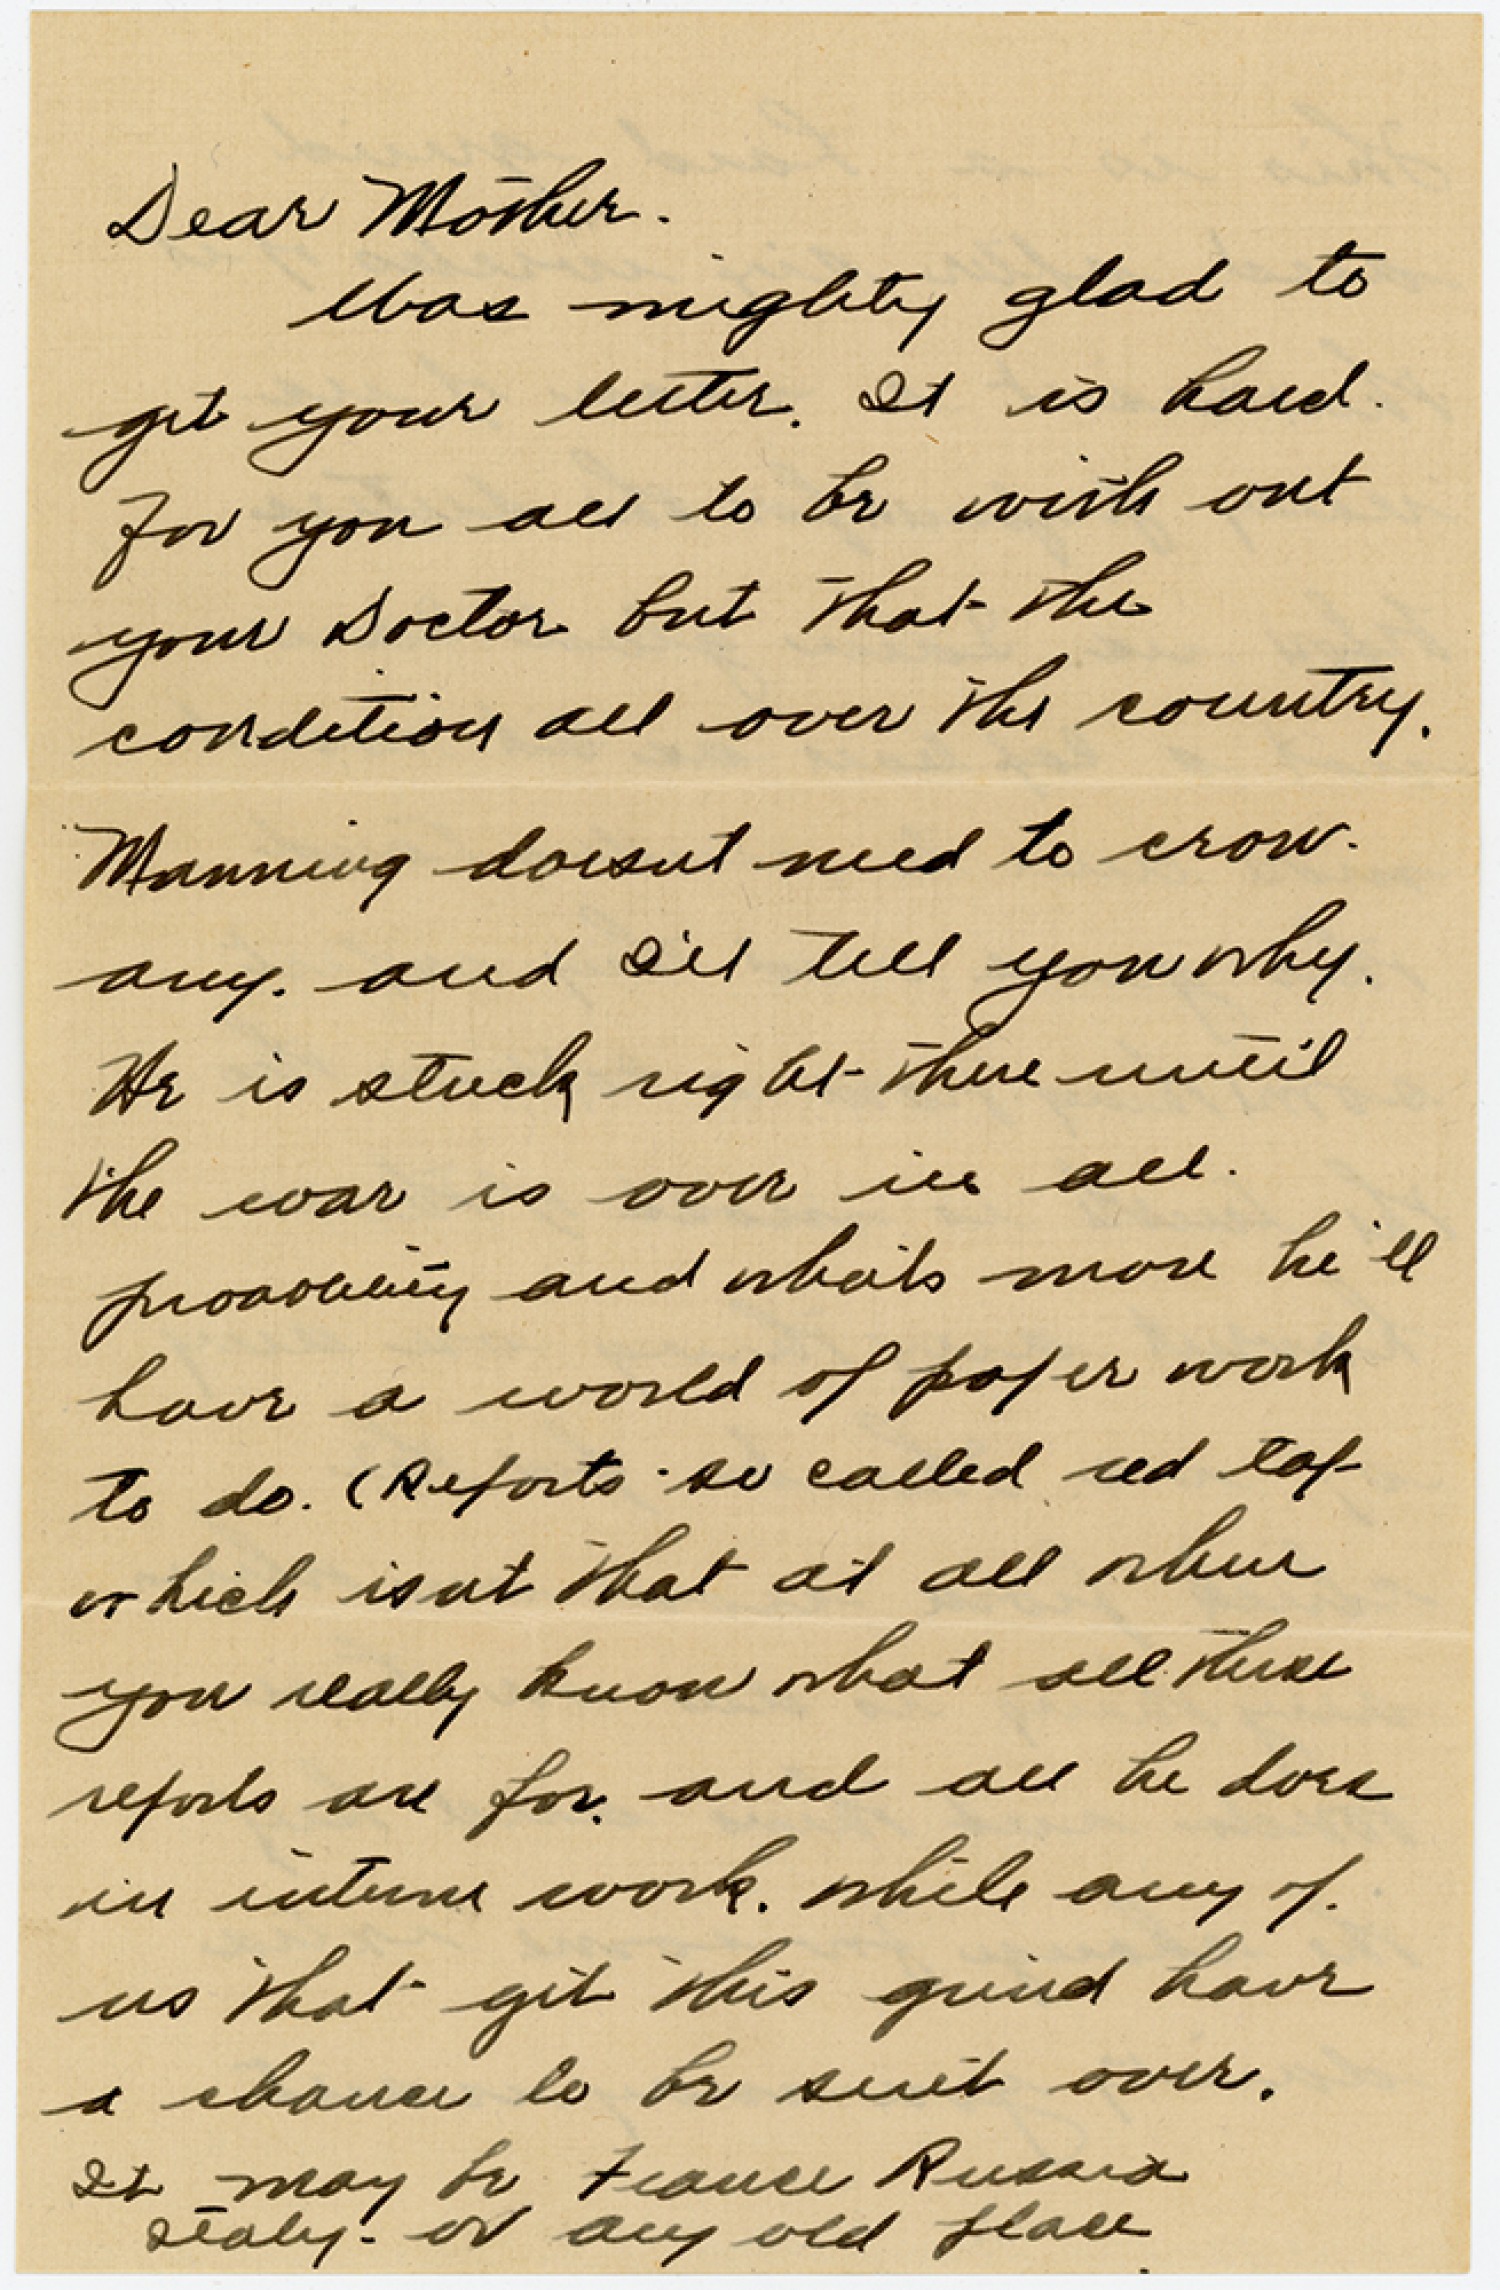 Dear Mother.
Was mighty glad to
get your letter. It is hard.
for you all to be with out
your Doctor but that the
condition all over the country.
Manning doesnt need to crow.
any. and I'll tell you why.
He is stuck right there until
the war is over in all.
probability and whats more he'll
have a world of paper work
to do. (Reports - so called red tap
which isnt that at all when
you really know what all these
reports are for. and all he does
in interne work. while any of.
us that get this grind have
a chance to be sent over.
It may be France Russia
Italy. or any old place.